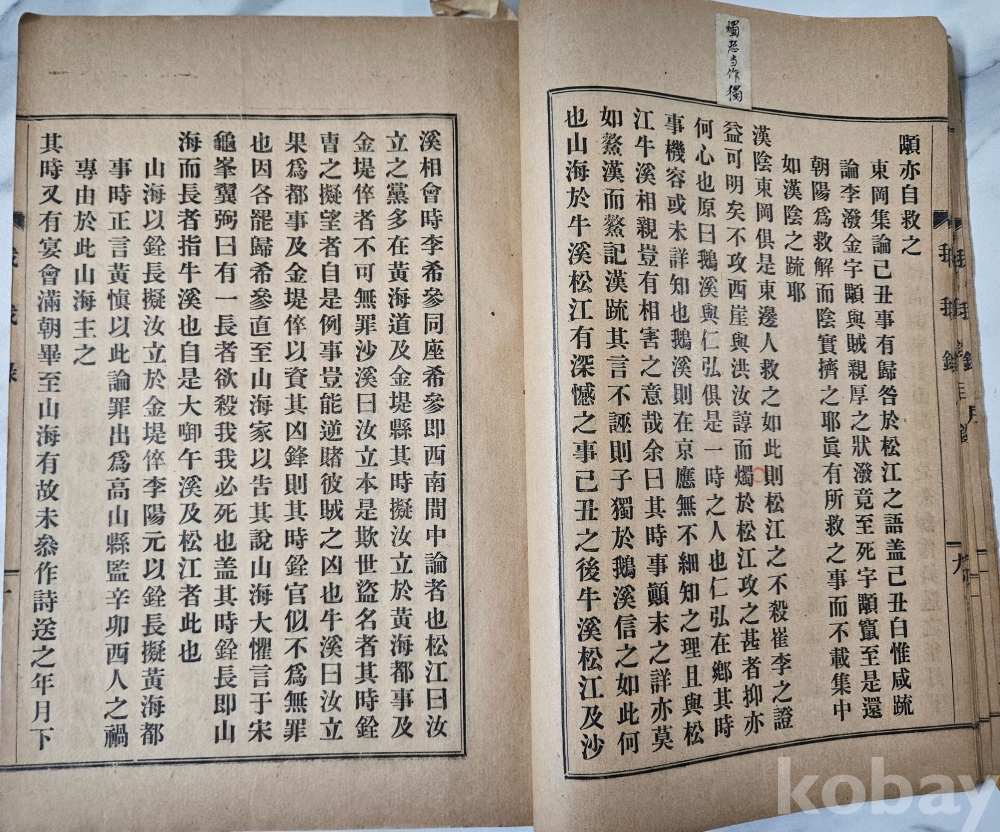 燭恐当作獨
顒亦自救之
東岡集論己丑事有歸咎於松江之語盖己丑白惟咸䟽
論李潑金字顒與賊親厚之狀潑竟至死字顒竄至是還
朝陽爲救解而陰實擠之耶眞有所救之事而不載集中
如漢陰之䟽耶
漢陰東岡俱是東邊人救之如此則松江之不殺崔李之證
益可明矣不攻西崖與洪汝諄而燭於松江攻之甚者抑亦
何心也原曰鵝溪與仁弘俱是一時之人也仁弘在鄕其時
事機容或未詳知也鵝溪則在京應無不細知之理且與松
江牛溪相親豈有相害之意哉余曰其時事顚末之詳亦莫
如鰲漢而鰲記漢䟽其言不誣則子獨於鵝溪信之如此何
也山海於牛溪松江有深憾之事己丑之後牛溪松江及沙
溪相會時李希參同座希參即西南間中論者也松江曰汝
立之黨多在黃海道及金堤縣其時擬汝立於黃海都事及
金堤倅者不可無罪沙溪曰汝立本是欺世盜名者其時銓
曺之擬望者自是例事豈能逆賭彼賊之凶也牛溪曰汝立
果爲都事及金堤倅以資其凶鋒則其時銓官似不爲無罪
也因各罷歸希參直至山海家以告其說山海大懼言于宋
龜峯翼弼曰有一長者欲殺我我必死也盖其時銓長即山
海而長者指牛溪也自是大啣午溪及松江者此也
山海以銓長擬汝立於金堤倅李陽元以銓長擬黃海都
事時正言黃愼以此論罪出爲高山縣監辛卯西人之禍
專由於此山海主之
其時又有宴會滿朝畢至山海有故未叅作詩送之年月下
kobay